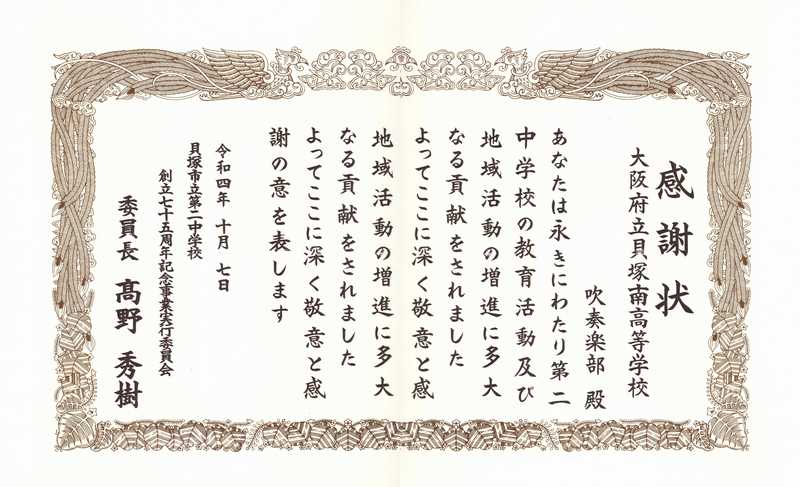 感謝状
大阪府立貝塚南高等学校
吹奏楽部 殿
あなたは永きにわたり第二
中学校の教育活動及び
地域活動の増進に多大
なる貢献をされました
よってここに深く敬意と感
地域活動の増進に多大
なる貢献をされました
よってここに深く敬意と感
謝の意を表します
令和四年 十月 七日
貝塚市立第二中学校
創立七十五周年記念事業実行委員会
委員長 髙野 秀樹